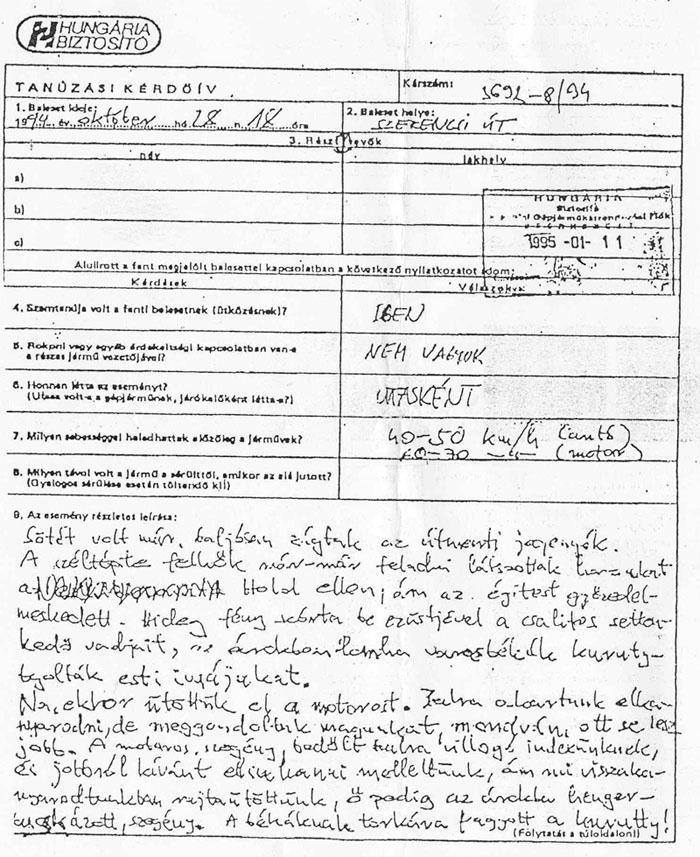 HUNGÁRIA
BIZTOSÍTÓ
TANÚZÁSI KÉRDŐÍV
Kárszám: 3692-8/94
1. Baleset ideje:
1994 év október hó 28 n. 18 óra
2. Baleset helye:
SZERENCSI ÚT
3. Résztvevők
név lakhely
a)
b)
c)
HUNGÁRIA
Biztosító
1995 -01- 11
Alulírott a fent megjelölt balesettel kapcsolatban a következő nyilatkozatot adom:
Kérdések Válaszok
4. Szemtanúja volt a fenti balesetnek (ütközésnek)?
IGEN
5. Rokoni vagy egyéb érdekeltségi kapcsolatban van-e
a részes jármű vezetőjével?
NEM VAGYOK
6. Honnan látta az eseményt?
(Utasa volt-e a gépjárműnek, járókelőként látta-e?)
UTASKÉNT
7. Milyen sebességgel haladhattak előzőleg a járművek?
40-50 km/h (autó)
60-70 -"- (motor)
8. Milyen távol volt a jármű a sérülttől, amikor az elé jutott?
(Gyalogos sérülése esetén töltendő ki!)
9. Az esemény részletes leírása:
Sötét volt már, baljósan zúgtak az útmenti jegenyék.
A széltépte felhők már-már feladni látszottak harcukat
a Hold ellen, ám az égitest győzedel-
meskedett. Hideg fény szórta be ezüstjével a csalitos setten-
kedő vadjait, az árokban lomha varasbékák kuruty-
tyolták esti imájukat.
Na, ekkor ütöttük el a motorost. Balra akartunk elka-
nyarodni, de meggondoltuk magunkat, mondván, ott se lesz
jobb. A motoros, szegény, bedőlt balra villogó indexünknek,
és jobbról kívánt elsuhanni mellettünk, ám mi visszaka-
nyarodtunkban rajtaütöttünk, ő pedig az árokba henger-
buckázott, szegény. A békáknak torkára fagyott a kurutty!
(Folytatás a túloldalon!)